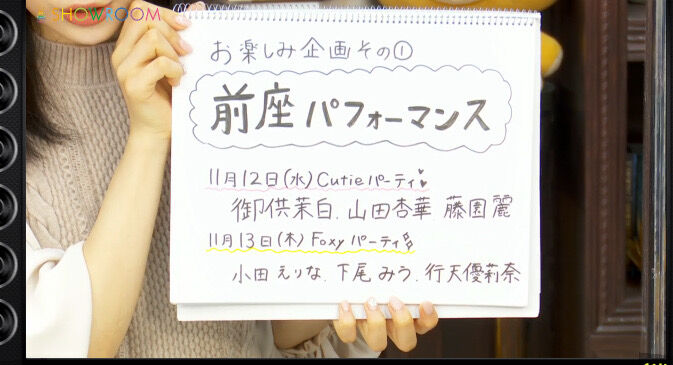 SHOWROOM
お楽しみ企画その①
前座パフォーマンス
11月12日(水) Cutieパーティ
御供茉白、山田杏華 藤園麗
11月13日(木) Foxyパーティ
小田えりな、下尾みう、行天優莉奈